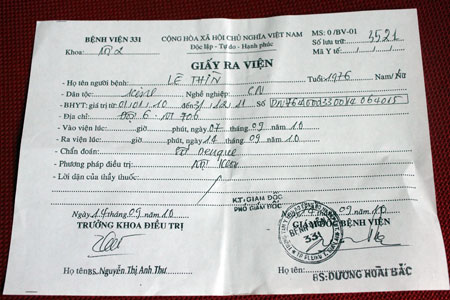 BỆNH VIỆN 331 CỘNG HÒA XÃ HỘI CHỦ NGHĨA VIỆT NAM MS: 0 /BV-01
Khoa: Nội 2 Độc lập - Tự do - Hạnh phúc Số lưu trữ: 3521
Mã Y tế
GIẤY RA VIỆN
- Họ tên người bệnh: LÊ THÌN Tuổi: 1976 Nam/Nữ
- Dân tộc: Kinh Nghề nghiệp: CN
- BHYT: giá trị từ 01/01/10 đến 31/12/11 Số
- Địa chỉ: 706
- Vào viện lúc: giờ phút, ngày 07 tháng 09 năm 10
- Ra viện lúc: giờ phút, ngày 14 tháng 09 năm 10
- Chẩn đoán: Dengue
- Phương pháp điều trị: Nội khoa
- Lời dặn của thầy thuốc:
K.T. GIÁM ĐỐC
PHÓ GIÁM ĐỐC
Ngày 14 tháng 09 năm 10 09 năm 10
TRƯỞNG KHOA ĐIỀU TRỊ BỆNH VIỆN
BỆNH VIỆN
331
Họ tên: BS. Nguyễn Thị Anh Thư Họ tên: BS: DƯƠNG HOÀI BẮC